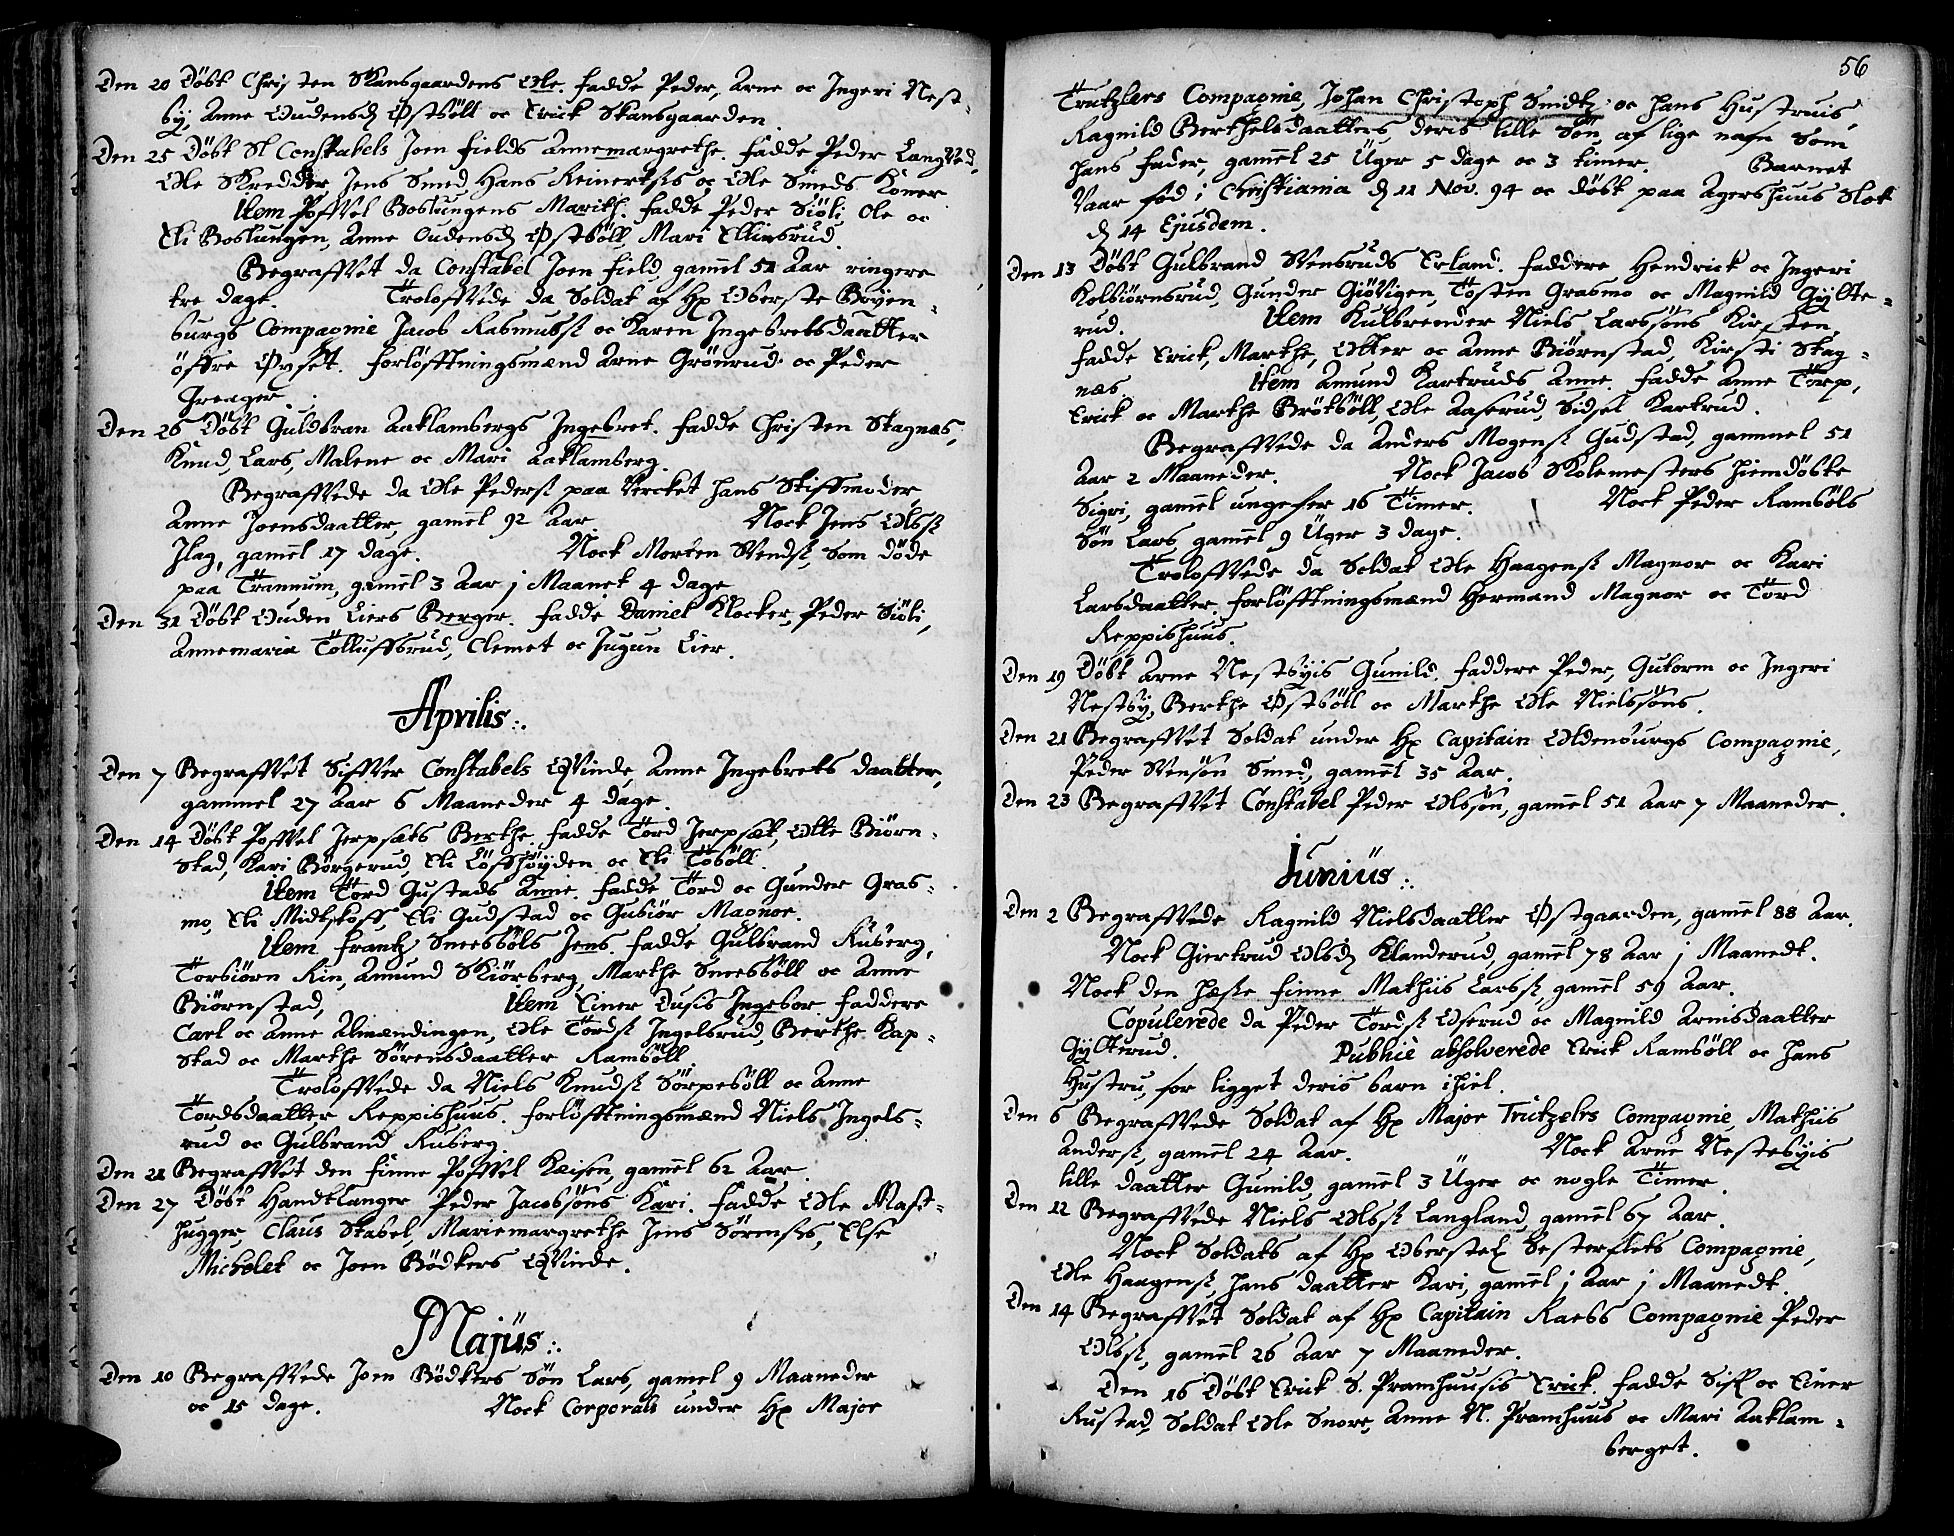 Den 20 Döbt Christen Skansgaardens Ole. fadde Peder, Arne oc Ingeri Nest-
by, Anne Oudensd Østböll oc Erick Skansgaarden.
Den 25 Döbt Sl Constabels Joen Fields Annemargrethe. fadde Peder Langved,
Ole Skredder, Jens Smed, Hans Reinertsis oc Ole Smeds Koner.
Item Poffvel Boslungens Marith. fadde Peder Siöli, Ole oc
Eli Boslungen, Anne Oudensd Østböll, Mari Ellinsrud.
Begraffvet da Constabel Joen Field, gamel 51 Aar ringere
tre dage. Troloffvede da Soldat af Hr Oberste Böyen-
burgs Compagnie Jacob Rasmusst oc Karen Ingebretsdaatter
öffre Øvset. forlöfftningsmænd Arne Grönrud oc Peder
Ireager.
Den 26 Döbt Guldbran Aaklambergs Ingebret. fadde Christen Skagnæs,
Knud, Lars, Malene oc Mari Aaklamberg.
Begraffvede da Ole Pederst paa Vercket hans Stiffmoder
Anne Joensdaatter, gamel 92 Aar. Nock Jens Olsst
Ilag, gamel 17 dage. Nock Morten Svendst, som döde
paa Trannum, gamel 3 Aar j Maanet 4 dage
Den 31 Döbt Ouden Liers Berger. fadde Daniel Klocker, Peder Siöli,
Annemaria Tolluffsrud, Clemet oc Jugun Lier.
Aprilis:.
Den 7 Begraffvet Siffver Constabels Qvinde, Anne Ingebrets daatter,
gammel 27 Aar 6 Maaneder 4 dage.
Den 14 Döbt Poffvel Jerpsets Berthe. fadde Tord Jerpset, Otte Biörn-
stad, Kari Börgerud, Eli Löfshöyden oc Eli Toböll.
Item Tord Gustads Anne. fadde Tord oc Gunder Gras-
mo, Eli Midtskoff, Eli Gudstad oc Gubiör Magnor.
Item Frantz Sneesböls Jens. fadde Gulbrand Ruberg,
Torbiörn Rin, Amund Skiörberg, Marthe Sneesböll oc Anne
Biörnstad, Item Einer Dusis Ingebor. faddere
Carl oc Anne Almændingen, Ole Tordst Ingelsrud, Berthe Kap-
stad oc Marthe Sörensdaatter Ramsöll
Troloffvede da Niels Knudst Sörpeböll oc Anne
Tordsdaatter Reppishuus. forlöfftningsmænd Niels Ingels-
rud oc Gulbrand Ruberg
Den 21 Begraffvet den finne Poffvel Keisen, gamel 62 Aar.
Den 27 Döbt Handtlanger Peder Jacobsöns Kari. fadde Ole Mast-
hugger, Claus Stabel, Mariemargrethe Jens Sörensis, Else
Michelet oc Joen Bödkers Qvinde.
Majüs:.
Den 10 Begraffvede Joen Bödkers Sön Lars, gamel 9 Maaneder
oc 15 dage. Nock Corporals under Hr Major
56
Trutzlers Compagnie, Johan Christoph Smidtz oc hans Hustruis
Ragnild Berthelsdaatters deris lille Sön af lige nafn Som
hans fader, gamel 25 Üger 5 dage oc 3 timer. Barnet
Vaar fød i Christiania d 11 Nov. 94 oc döbt paa Agershuus Slot
d 14 Ejusdem.
Den 13 Döbt Gulbrand Svensruds Erland. faddere Hendrick oc Ingeri
Kolbiörnsrud, Gunder Giövigen, Tosten Grasmo oc Magnild Gylte-
rud. Item Kulbrender Niels Larssöns Kirsten.
fadde Erick, Marthe, Otter oc Anne Biörnstad, Kirsti Skag-
næs Item Amund Kartruds Anne. fadde Anne Torp,
Erick oc Marthe Brötböll, Ole Aaserud, Sidsel Kartrud.
Begraffvede da Anders Mogenst Gudstad, gammel 51
Aar 2 Maaneder. Nock Jacob Skolemesters hiemdöbte
Sigri, gamel ungefer 16 Timer. Nock Peder Ramsöls
Sön Lars gamel 9 Üger 3 dage.
Troloffvede da Soldat Ole Haagenst Magnor oc Kari
Larsdaatter. forlöfftningsmænd Hermand Magnor oc Tord
Reppishuus.
Den 19 Döbt Arne Nestbyis Gunild. faddere Peder, Gutorm oc Ingeri
Nestby, Berthe Østböll oc Marthe Ole Nielssöns.
Den 21 Begraffvet Soldat under Hr Capitain Oldenburgs Compagnie,
Peder Svensön Smed, gamel 35 Aar.
Den 23 Begraffvet Constabel Peder Olssön, gamel 51 Aar 7 Maaneder.
Iunius:.
Den 2 Begraffvede Ragnild Nielsdaatter Østgaarden, gamel 88 Aar.
Nock Giertrud Olsd Klanderud, gamel 78 Aar j Maanedt.
Nock den heste finne Mathiis Larsst gamel 59 Aar.
Copulerede da Peder Tordst Oserud oc Magnild Arnisdaatter
Gylterud. Publicè absolverede Erick Ramsöll oc hans
Hustru, for ligget deris barn ihiel.
Den 6 Begraffvede Soldat af Hr Major Trutzelrs Compagnie, Mathiis
Anderst, gamel 24 Aar. Nock Arne Nestebyis
lille daatter Gunild gamel 3 Üger oc nogle Timer.
Den 12 Begraffvede Niels Olsst Langland, gamel 67 Aar.
Nock Soldats af Hr Oberstel Sesterflets Compagnie,
Ole Haagenst, hans daatter Kari, gamel j Aar j Maanedt.
Den 14 Begraffvet Soldat af Hr Capitain Raebs Compagnie Peder
Olsst, gamel 26 Aar 7 Maaneder.
Den 16 Döbt Erick S. Pramhuusis Erick. fadde Siff oc Einer
Rustad, Soldat Ole Snore, Anne N. Pramhuus oc Mari Aaklam-
berget.